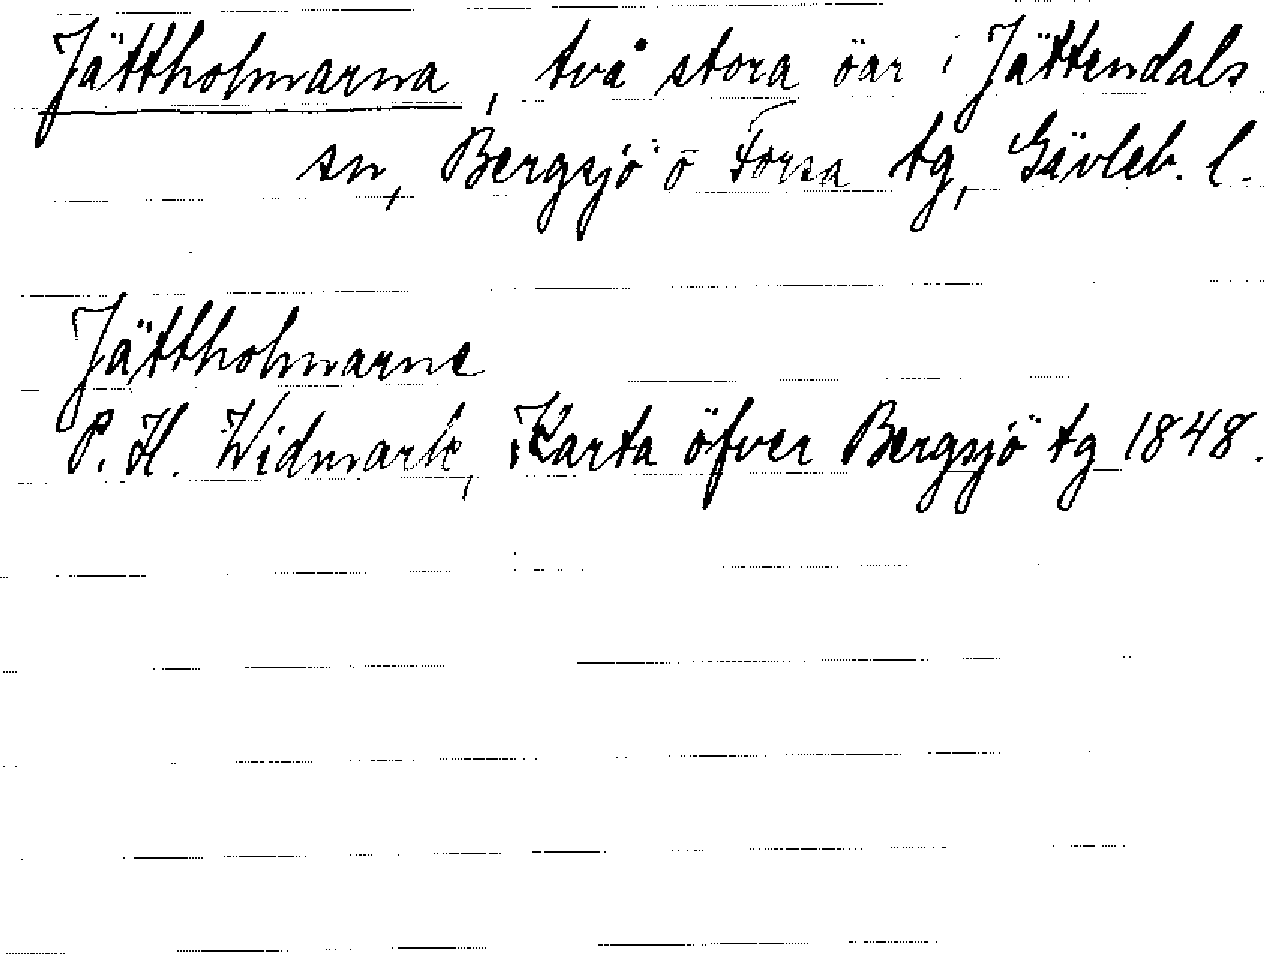 Jättholmarna, två stora öar i Jättendals
sn, Bergsjö o Forsa tg, Gävleb. l.
Jättholmarne
P. H. Widmark, Karta öfver Bergsjö tg 1848.